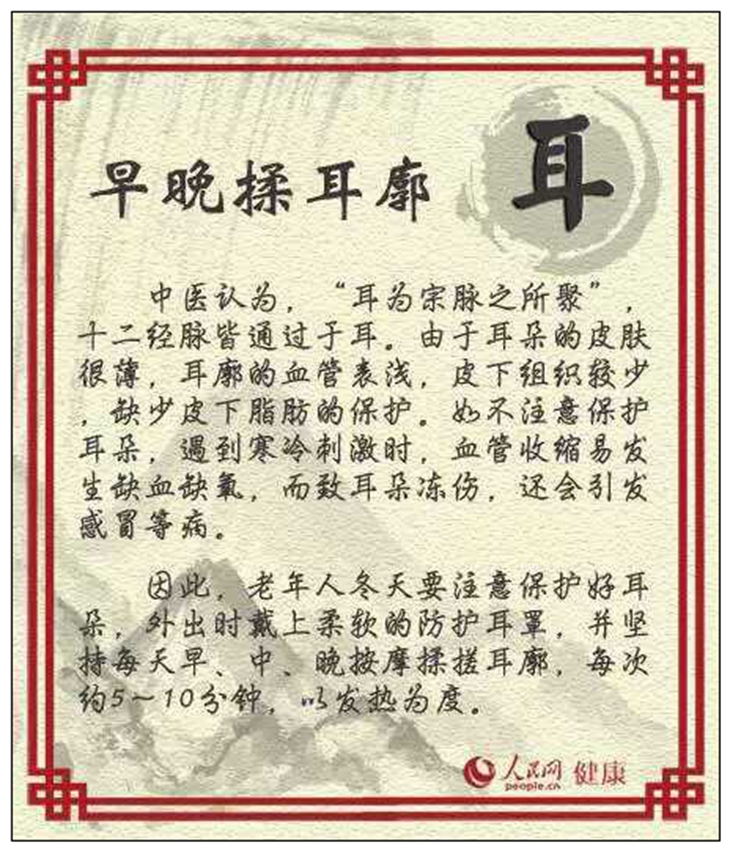 早晚揉耳廓
耳
中医认为，“耳为宗脉之所聚”，
十二经脉皆通过于耳。由于耳朵的皮肤
很薄，耳廓的血管表浅，皮下组织较少
，缺少皮下脂肪的保护。如不注意保护
耳朵，遇到寒冷刺激时，血管收缩易发
生缺血缺氧，而致耳朵冻伤，还会引发
感冒等病。
因此，老年人冬天要注意保护好耳
朵，外出时戴上柔软的防护耳罩，并坚
持每天早、中、晚按摩揉搓耳廓，每次
约5～10分钟，以发热为度。
人民网 健康
people.cn